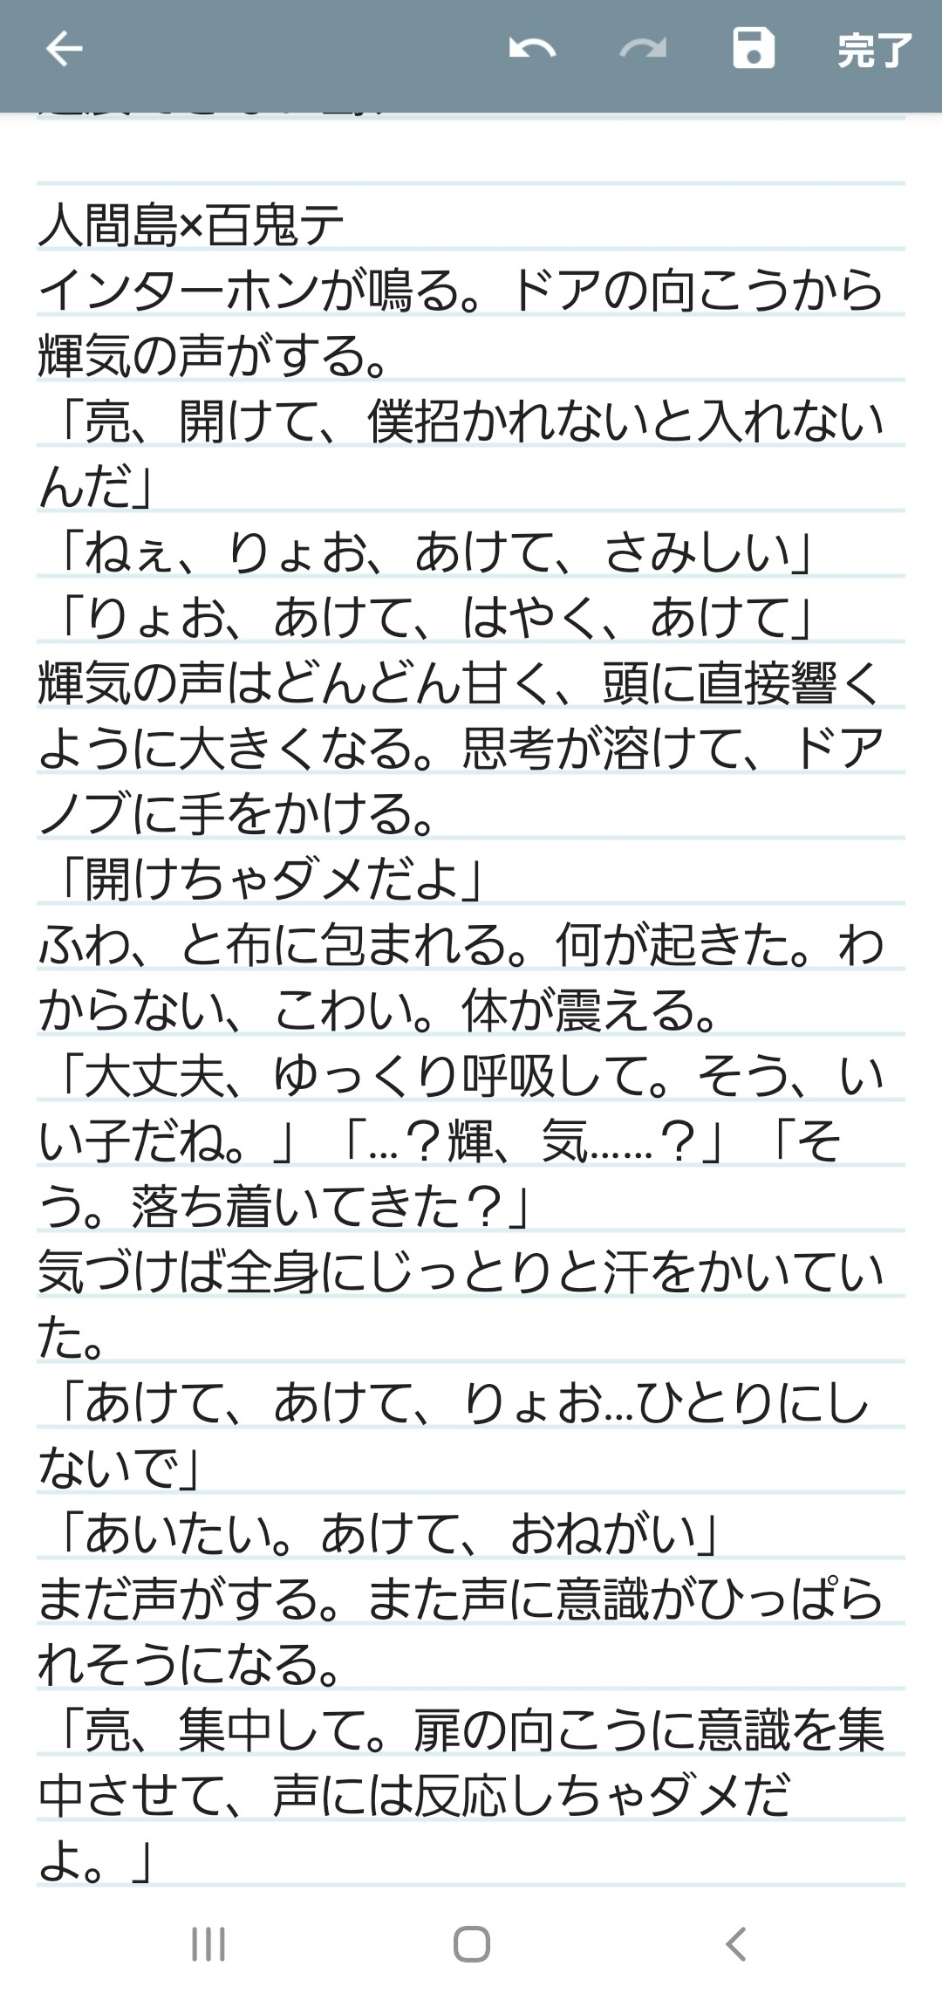 完了
人間島×百鬼テ
インターホンが鳴る。ドアの向こうから
輝気の声がする。
「亮、開けて、僕招かれないと入れない
んだ」
「ねぇ、りょお、あけて、さみしい」
「りょお、あけて、はやく、あけて」
輝気の声はどんどん甘く、頭に直接響く
ように大きくなる。思考が溶けて、ドア
ノブに手をかける。
「開けちゃダメだよ」
ふわ、と布に包まれる。何が起きた。わ
からない、こわい。体が震える。
「大丈夫、ゆっくり呼吸して。そう、い
い子だね。」「…？輝、気……？」「そ
う。落ち着いてきた？」
気づけば全身にじっとりと汗をかいてい
た。
「あけて、あけて、りょお…ひとりにし
ないで」
「あいたい。あけて、おねがい」
まだ声がする。また声に意識がひっぱら
れそうになる。
「亮、集中して。扉の向こうに意識を集
中させて、声には反応しちゃダメだ
よ。」